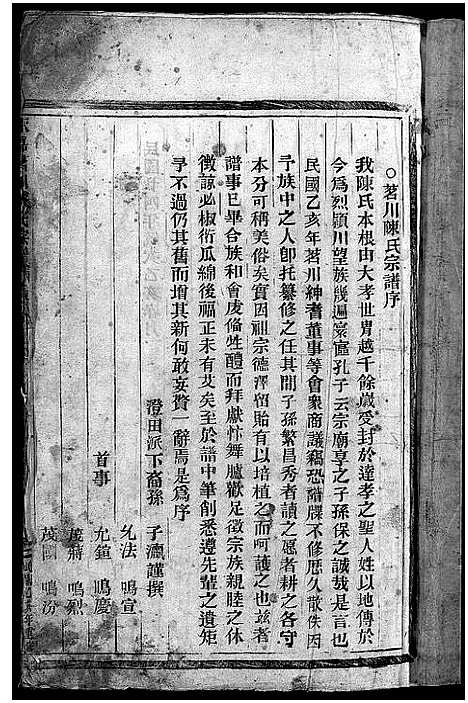 ○茗川陳氏宗譜序
我陳氏本根由大孝世胄越千餘歲受封於達孝之聖人姓以地傳於
今爲烈潁川望族幾遍寰區孔子云宗廟享之子孫保之誠哉是言也
民國乙亥年茗川紳耆董事等會衆商議竊恐譜牒不修歷久散佚因
予族中之人卽托纂修之任其間子孫繁昌秀者讀之愿者耕之各守
本分可稱美俗矣實因祖宗德澤留貽有以培植之而呵護之也茲者
譜事已畢合族和會虔備牲醴而拜獻忭舞臚歡足徵宗族親睦之休
徵諒必椒衍瓜綿後福正未有艾矣至於譜中筆削悉遵先輩之遺矩
予不過仍其舊而增其新何敢妄贅一辭焉是爲序
澄田派下裔孫 子 謹撰
首事
允法 鳴宣
允 鳴慶
茂 鳴烈
茂 鳴汾